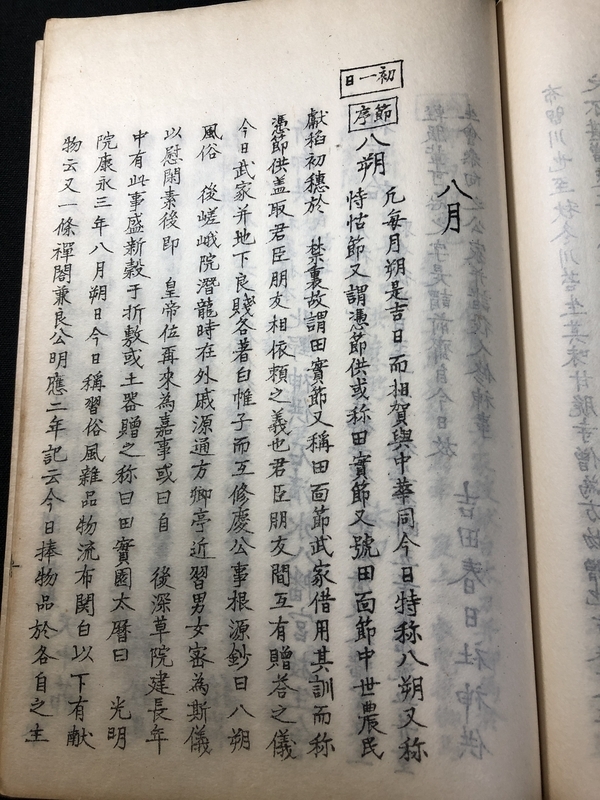 八月
初一日
節序
八朔 凢每月朔是吉日而相賀與中華同今日特称八朔又称
恃怙節又謂憑節供或称田實節又號田面節中世農民
獻稻初穗於 禁裏故謂田實節又稱田面節武家借用其訓而称
憑節供盖取君臣朋友相依頼之義也君臣朋友間互有贈荅之儀
今日武家并地下良賤各著白帷子而互修慶公事根源鈔曰八朔
風俗 後嵯峨院潛龍時在外戚源通方卿亭近習男女審為斯儀
以慰閑素後即 皇帝位再來為嘉事或曰自 後深草院建長年
中有此事盛新穀于折敷或土器贈之称曰田實園太曆曰 光明
院康永三年八月朔日今日稱習俗風雜品物流布関白以下有献
物云又一條禪閤兼良公明應二年記云今日捧物品於各自之主